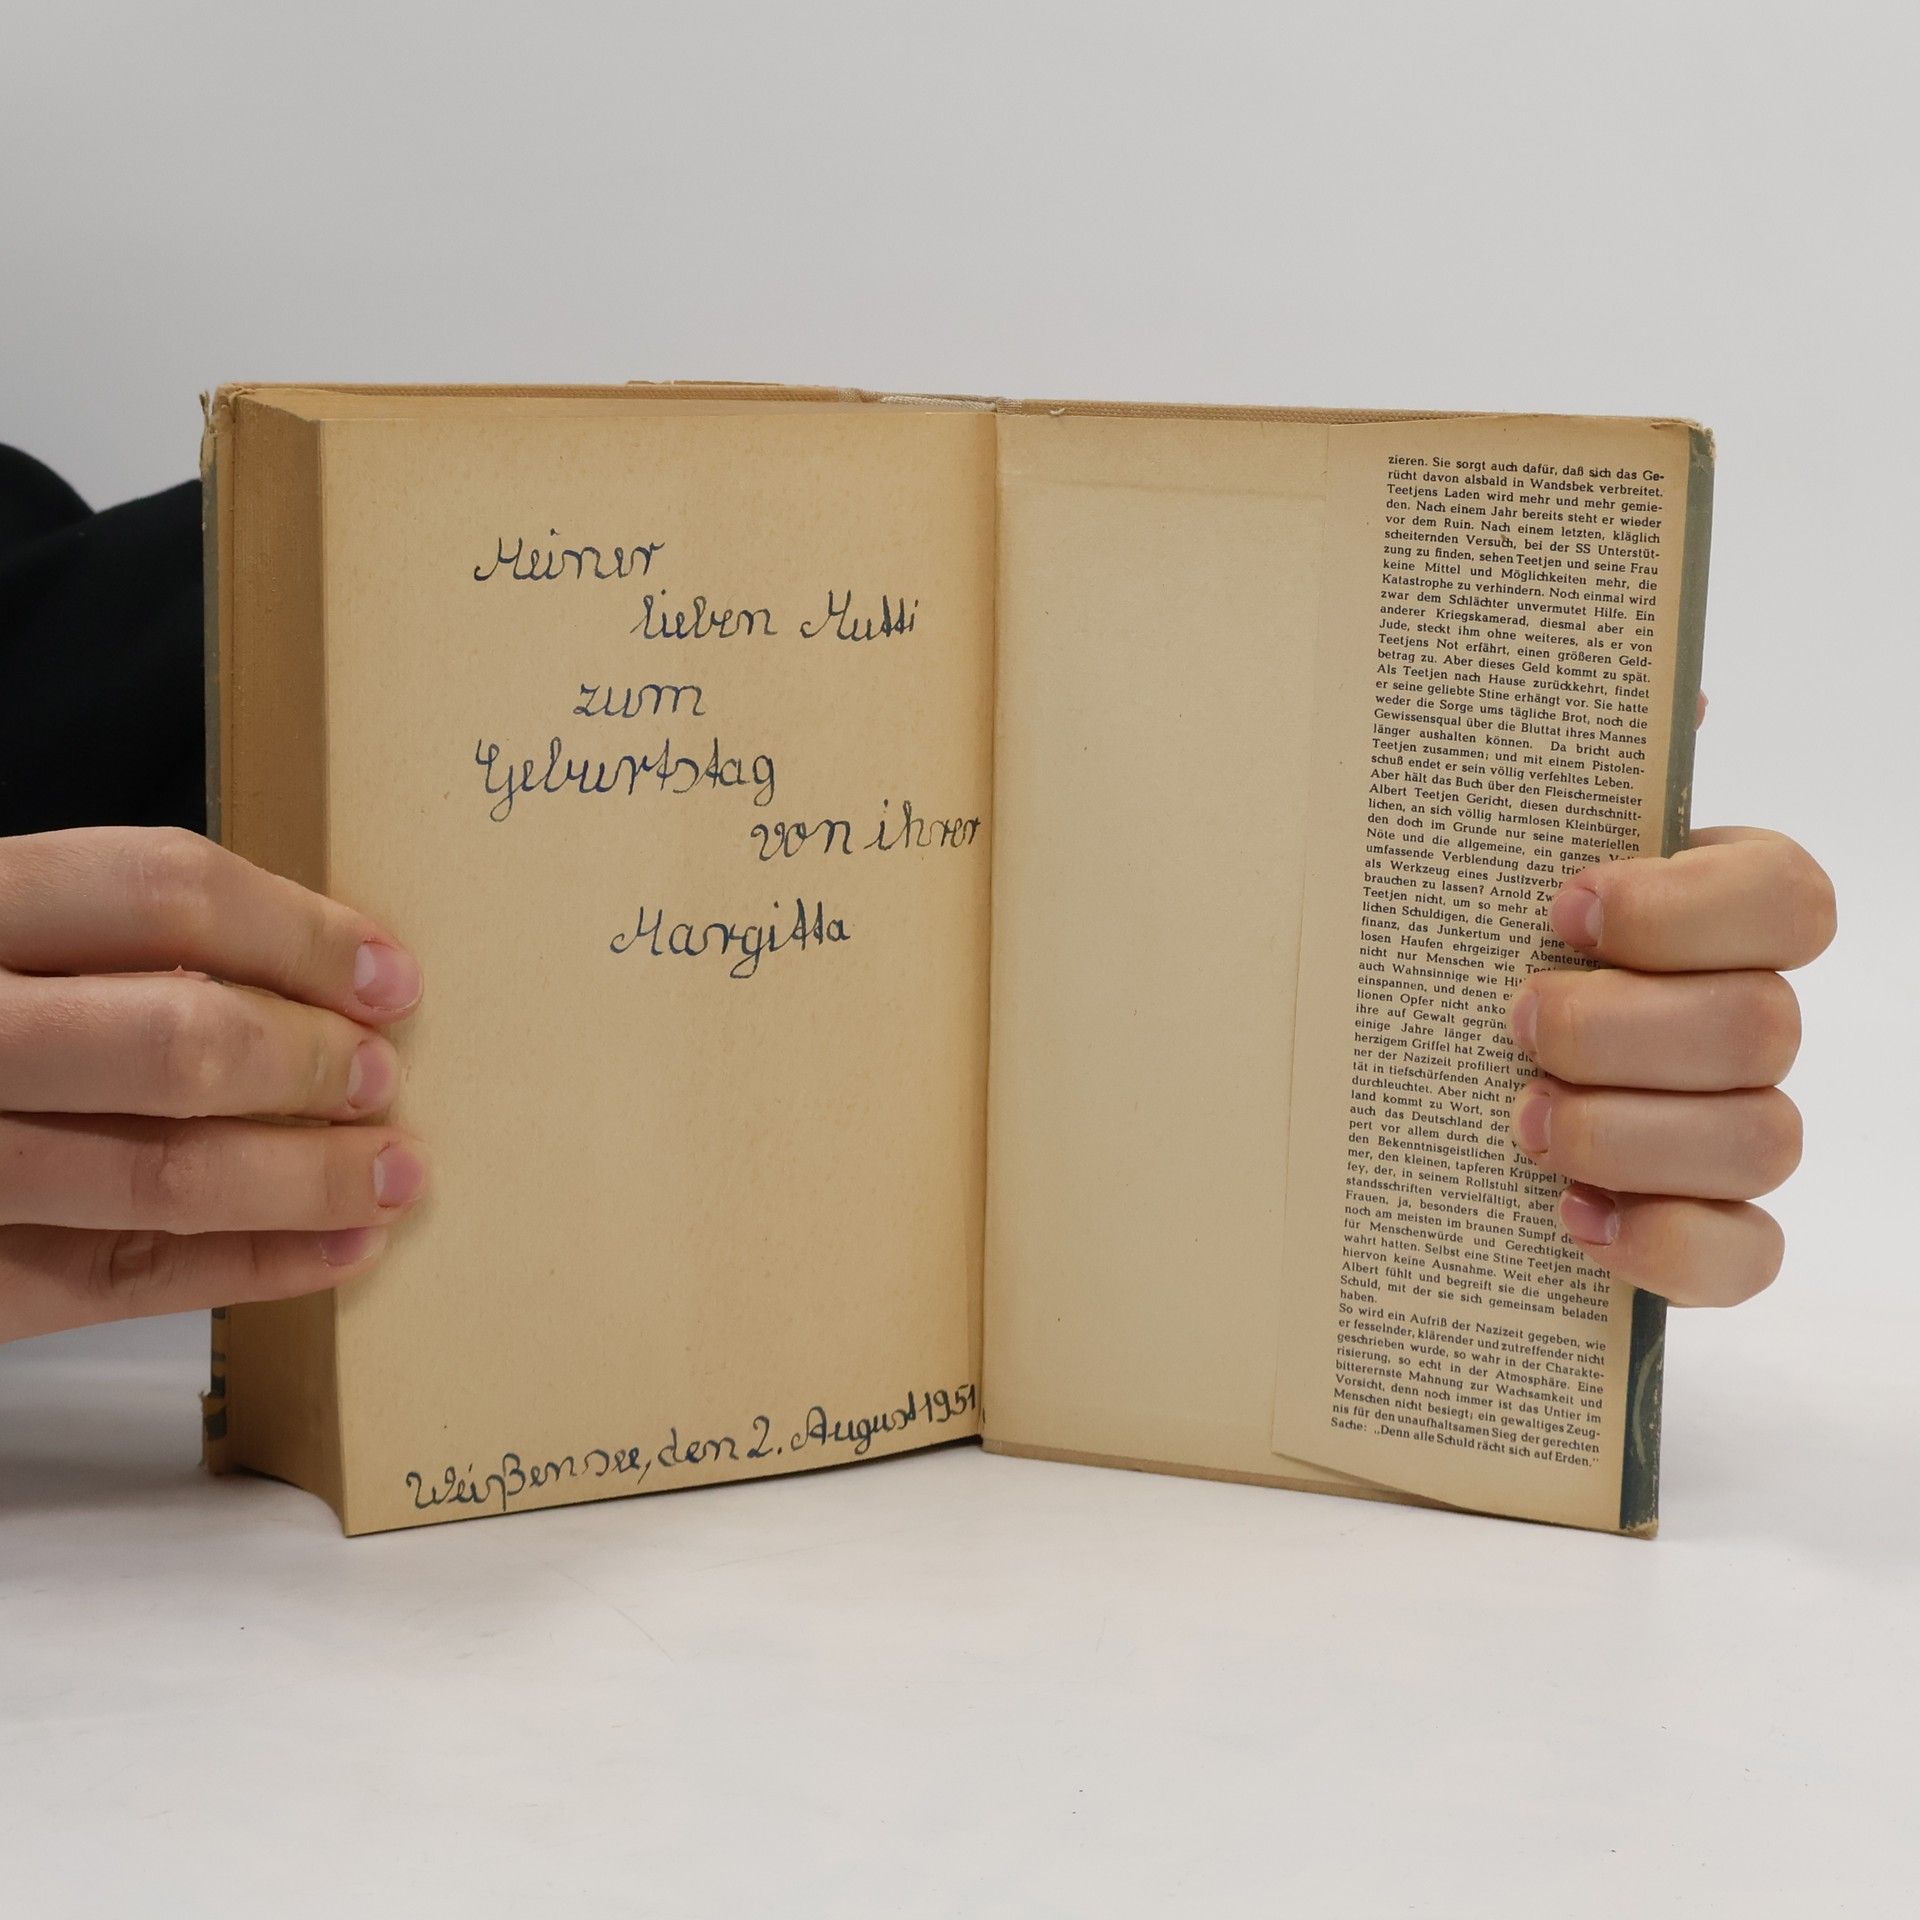 Meiner
lieben Mutti
zum
Geburtstag
von ihrer
Margitta
Weißensee, den 2. August 1951
zieren. Sie sorgt auch dafür, daß sich das Ge-
rücht davon alsbald in Wandsbek verbreitet.
Teetjens Laden wird mehr und mehr gemie-
den. Nach einem Jahr bereits steht er wieder
vor dem Ruin. Nach einem letzten, kläglich
scheiternden Versuch, bei der SS Unterstüt-
zung zu finden, sehen Teetjen und seine Frau
keine Mittel und Möglichkeiten mehr, die
Katastrophe zu verhindern. Noch einmal wird
zwar dem Schlächter unvermutet Hilfe. Ein
anderer Kriegskamerad, diesmal aber ein
Jude, steckt ihm ohne weiteres, als er von
Teetjens Not erfährt, einen größeren Geld-
betrag zu. Aber dieses Geld kommt zu spät.
Als Teetjen nach Hause zurückkehrt, findet
er seine geliebte Stine erhängt vor. Sie hatte
weder die Sorge ums tägliche Brot, noch die
Gewissensqual über die Bluttat ihres Mannes
länger aushalten können. Da bricht auch
Teetjen zusammen; und mit einem Pistolen-
schuß endet er sein völlig verfehltes Leben.
Aber hält das Buch über den Fleischermeister
Albert Teetjen Gericht, diesen durchschnitt-
lichen, an sich völlig harmlosen Kleinbürger,
den doch im Grunde nur seine materiellen
Nöte und die allgemeine, ein ganzes
umfassende Verblendung dazu
als Werkzeug eines
brauchen zu lassen? Arnold
Teetjen nicht, um so mehr
lichen Schuldigen, die
finanz, das Junkertum und jene
losen Haufen ehrgeiziger Abenteurer,
nicht nur Menschen wie
auch Wahnsinnige wie
einspannen, und denen
lionen Opfer nicht
ihre auf Gewalt
einige Jahre länger
herzigem Griffel hat Zweig
ner der Nazizeit profiliert und
tät in tiefschürfenden
durchleuchtet. Aber nicht
land kommt zu Wort,
auch das Deutschland der
pert vor allem durch die
den Bekenntnisgeistlichen
mer, den kleinen, tapferen Krüppel
fey, der, in seinem Rollstuhl
standsschriften vervielfältigt, aber
Frauen, ja, besonders die Frauen,
noch am meisten im braunen Sumpf
für Menschenwürde und Gerechtigkeit
wahrt hatten. Selbst eine Stine Teetjen macht
hiervon keine Ausnahme. Weit eher als ihr
Albert fühlt und begreift sie die ungeheure
Schuld, mit der sie sich gemeinsam beladen
haben.
So wird ein Aufriß der Nazizeit gegeben, wie
er fesselnder, klärender und zutreffender nicht
geschrieben wurde, so wahr in der Charakte-
risierung, so echt in der Atmosphäre. Eine
bitterernste Mahnung zur Wachsamkeit und
Vorsicht, denn noch immer ist das Untier im
Menschen nicht besiegt; ein gewaltiges Zeug-
nis für den unaufhaltsamen Sieg der gerechten
Sache: „Denn alle Schuld rächt sich auf Erden."